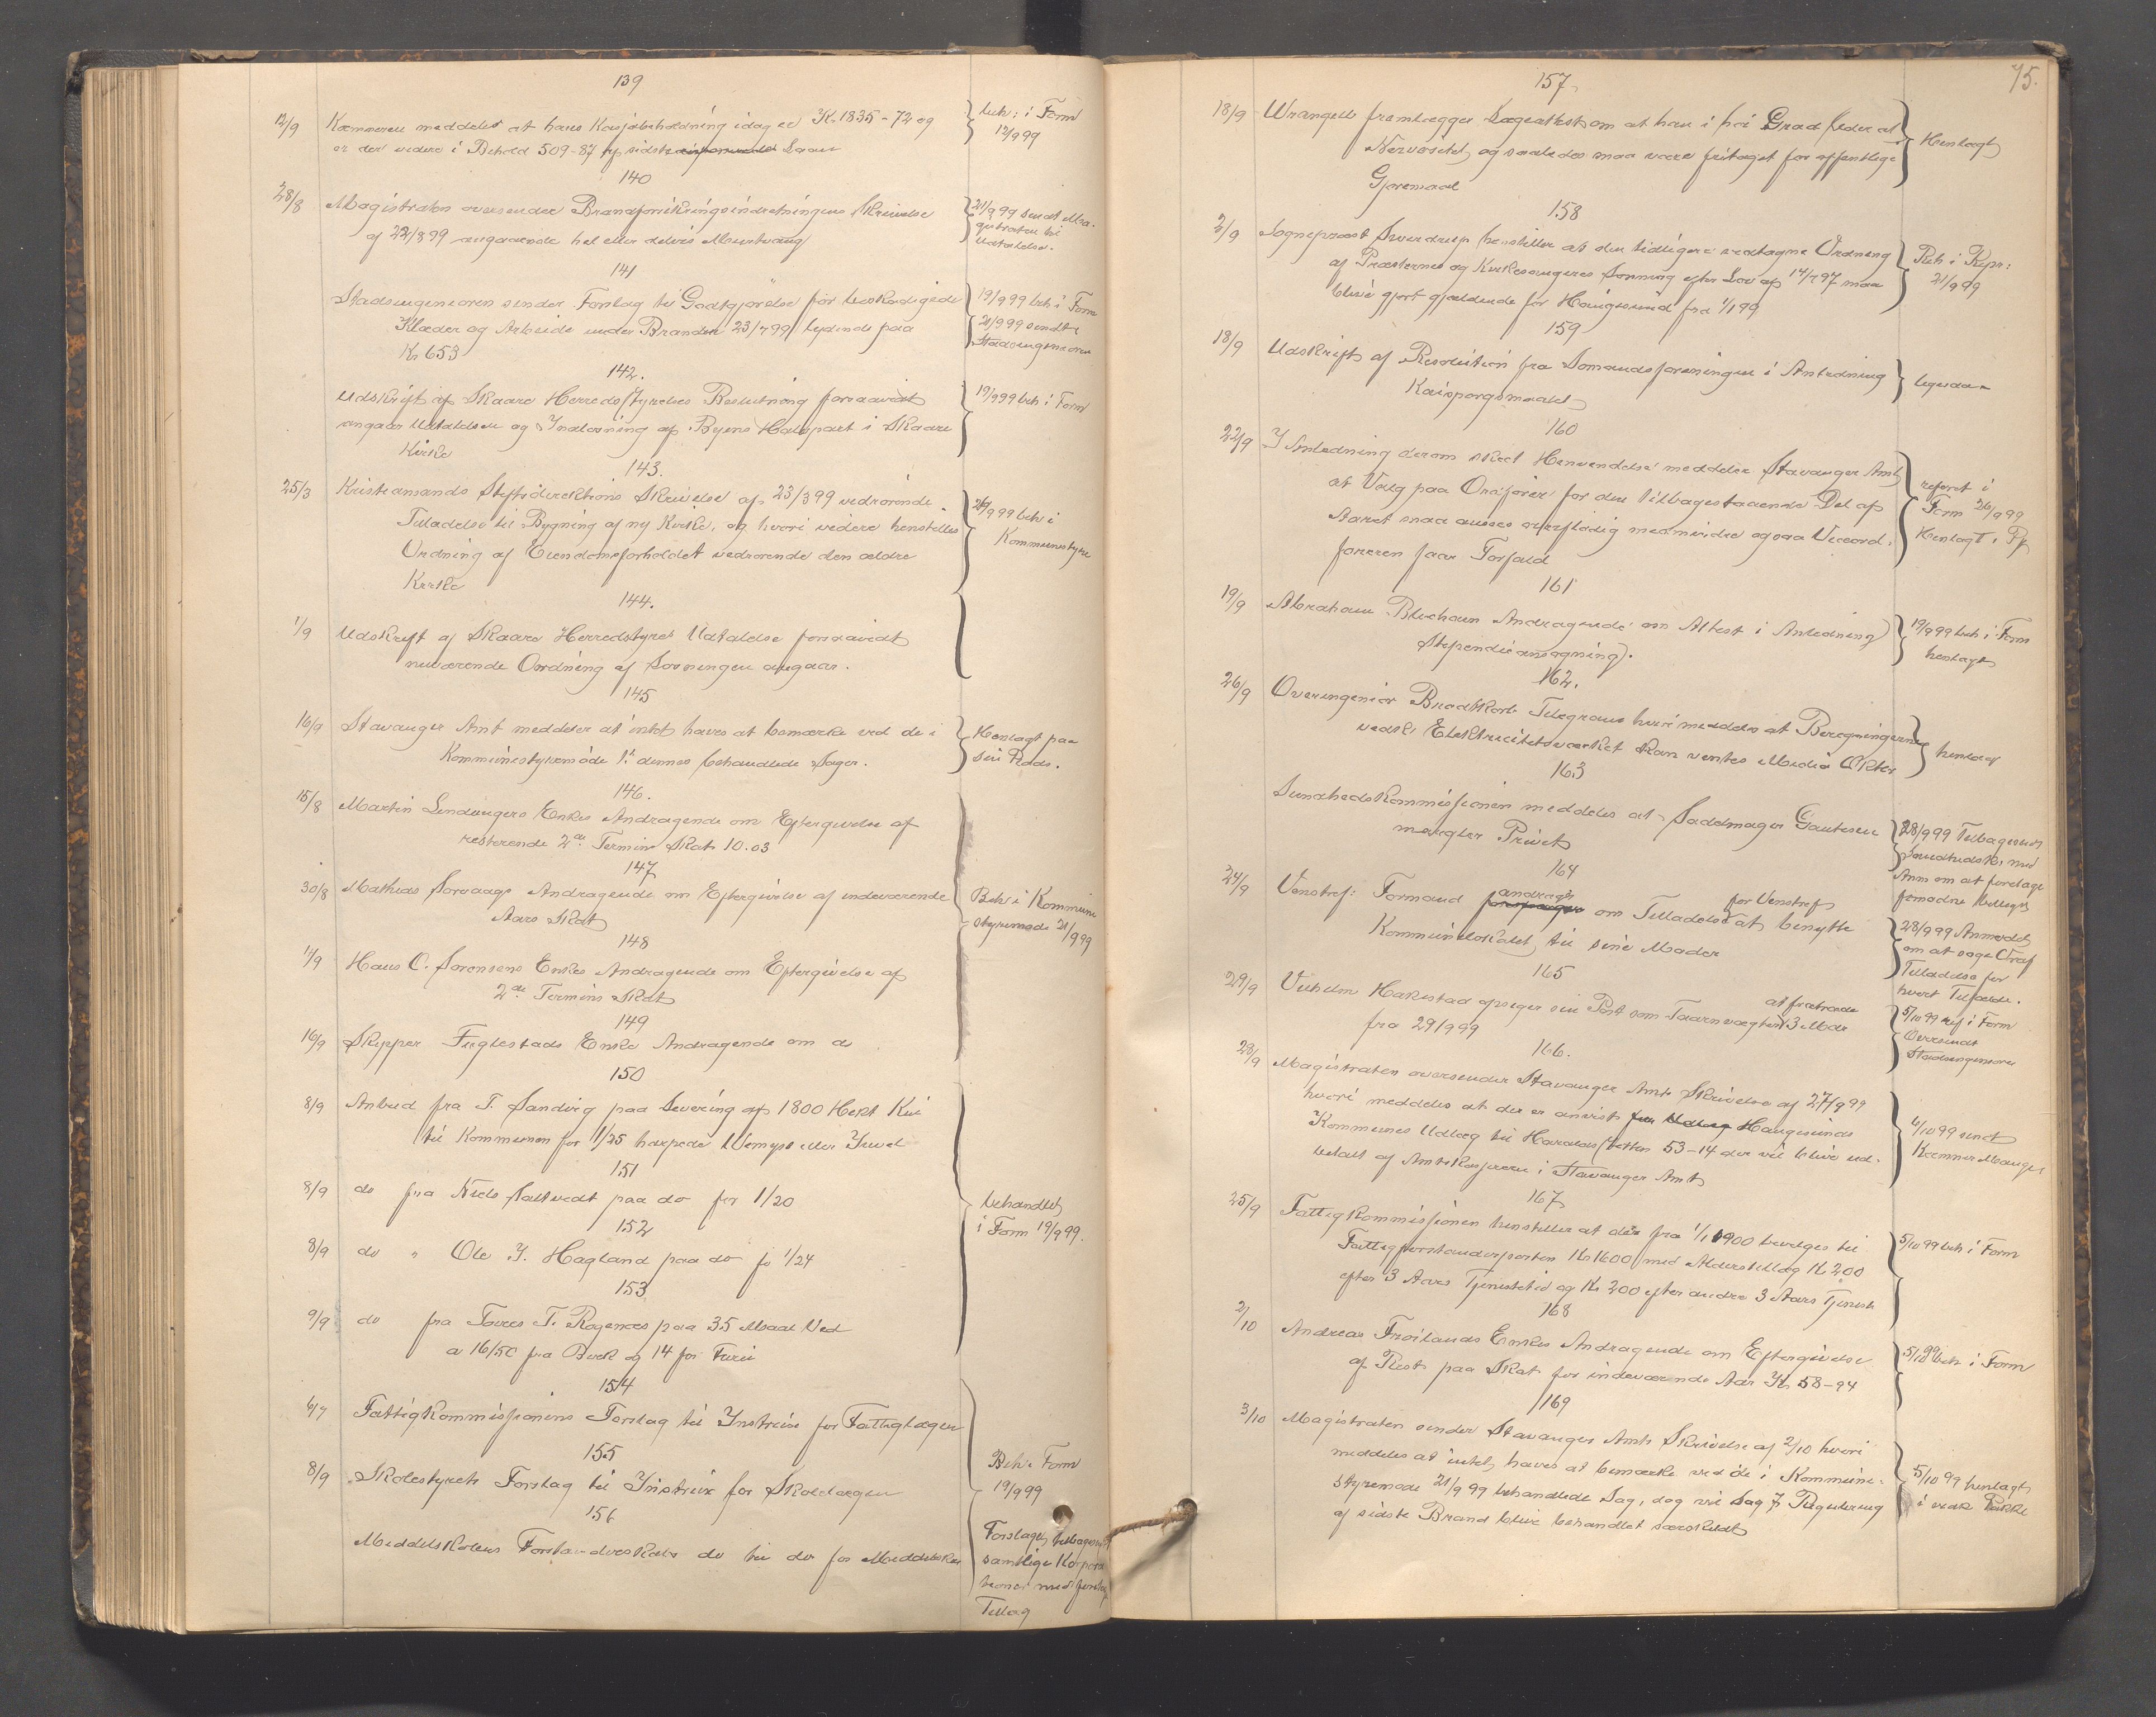 139
12/9 Kæmneren meddeles at hans Kassebeholdning idag er Kr 1835-72 og
er der videre i Behold 509-87 af sidste Laan
beh: i Form
12/9 99
140
28/8 Magistraten oversender Brandforsikringsindretningens Skrivelse
af 22/8 99 angaaende hel eller delvis
21/9 99 sendt Ma-
gistraten til
Udtalelse.
141
Stadsingeniøren sender Forslag til Godtgjørelse for beskadigede
Klæder og Arbeide under Branden 23/7 99 lydende paa
Kr 653
19/9 99 beh i Form
21/9 99 sendt
Stadsingeniøren
142.
Udskrift af Skaare Herredsstyrelses Beslutning forsaavidt
angaar Udtalelsen og Indløsning af Byens Halvpart i Skaare
Kirke
19/9 99 beh i Form
143.
25/3 Kristiansands Stiftsdirektions Skrivelse af 23/3 99 vedrørende
Tilladelse til Bygning af ny Kirke, og hvori videre henstilles
Ordning af Eiendomsforholdet vedrørende den ældre
Kirke
21/9 99 beh i
Kommunestyre
144.
1/9 Udskrift af Skaare Herredstyres Udtalelse forsaavidt
nuværende Ordning af Lønningen angaar.
145
16/9 Stavanger Amt meddeler at intet haves at bemærke ved de i
Kommunestyremøde 1' dennes behandlede Sager.
Henlagt paa
sin Plads.
146.
15/8 Martin Lindangers Enkes Andragende om Eftergivelse af
resterende 2de Termin Skat 10.03
147
30/8 Mathias Sørvaags Andragende om Eftergivelse af indeværende
Aars Skat
Beh i Kommune
styremøde 21/9 99
148
11/9 Hans C. Sørensens Enkes Andragende om Eftergivelse af
2de Termins Skat
149
16/9 Skipper Fuglestads Enke Andragende om do
150
8/9 Anbud fra T. Sandvig paa Levering af 1800 Hekt Kul
til Kommunen for 1/25 harpede Wemyss eller
151
8/9 do fra Niels Saltvedt paa do for 1/20
behandlet
i Form 19/9 99.
152
8/9 do " Ole J. Hagland paa do for 1/24
153
9/9 do fra Tørres T. Røgenæs paa 35 Maal Ved
a 16/50 fra Birk og 14 for Furu
154
6/7 Fattigkommissionens Forslag til Instrux for Fattiglægen
155
8/9 Skolestyrets Forslag til Instrux for Skolelægen
Beh i Form
19/9 99
156
Middelskolens Forstanderskabs do til do for Middelskolen
Forslaget tilbagesendt
samtlige Korpora
tioner med forslag
Tillæg
75.
157.
18/9 Wrangell fremlægger Lægeattest om at han i høi Grad lider af
Nervøsitet og saaledes maa være fritaget for offentlige
Gjøremaal
Henlagt
158
2/9 Sogneprest Sverdrup henstiller at den tidligere vedtagne Ordning
af Præsternes og Kirkesangeres Lønning efter Lov af 14/7 97 maa
blive gjort gjældende for Haugesund fra 1/1 99
Beh i Repr:
21/9 99
159
18/9 Udskrift af Resolution fra Sømandsforeningen i Anledning
Kaispørgsmaalet
ligedan
160
22/9 I Anledning derom skeet Henvendelse meddeler Stavanger Amt
at Valg paa Ordfører for den tilbagestaaende Del af
Aaret maa ansees overflødig medmindre ogsaa Viceord-
føreren faar Forfald
referet i
Form 26/9 99
Henlagt
161
19/9 Abraham Andragende om Attest i Anledning
Stipendieansøgning.
19/9 99 beh i Form
henlagt
162.
26/9 Overingeniør Telegram hvori meddeles at Beregningerne
vedk Elektricitetsværket kan ventes Medio Okbr
henlagt
163
Sundhedskommissionen meddeles at Sadelmager Gautesen
mangler Privet
28/9 99 Tilbagesendt
Sundhedsk. med
Anm om at foretage
fornødne
164
24/9 Venstref: Formand andrager om Tilladelse for Venstref at benytte
Kommunelokalet til sine Møder
28/9 99 Anmodet
om at søge
Tilladelse for
hvert Tilfælde.
165
29/9 Vilhelm Hakestad opsiger sin Post som Taarnvægter at fratræde 3 Mdr
fra 29/9 99
5/10 99 ref i Form
Oversendt
Stadsingeniøren
166.
28/9 Magistraten oversender Stavanger Amts Skrivelse af 27/9 99
hvori meddeles at der er anvist for Udlæg Haugesunds
Kommunes Udlæg til Haralds støtten 53-14 der vil blive ud-
betalt af Amtskassereren i Stavanger Amt
4/10 99 sendt
Kæmner
167
25/9 Fattigkommissionen henstiller at der fra 1/1 1900 bevilges til
Fattigforstanderposten Kr 1600 med Alderstillæg Kr 200
efter 3 Aars Tjenestetid og Kr 200 efter andre 3 Aars Tjeneste
5/10 99 beh i Form
168
2/10 Andreas Frøilands Enkes Andragende om Eftergivelse
af Rest paa Skat for indeværende Aar Kr 58-94
5/10 99 beh i Form
169
3/10 Magistraten sender Stavanger Amts Skrivelse af 2/10 hvori
meddeles at intet haves at bemærke ved de i Kommune-
styremøde 21/9 99 behandlede Sag, dog vil Sag 7 Regulering
af sidste Brand blive behandlet særskildt
5/10 99 henlagt
i vedk Pakke